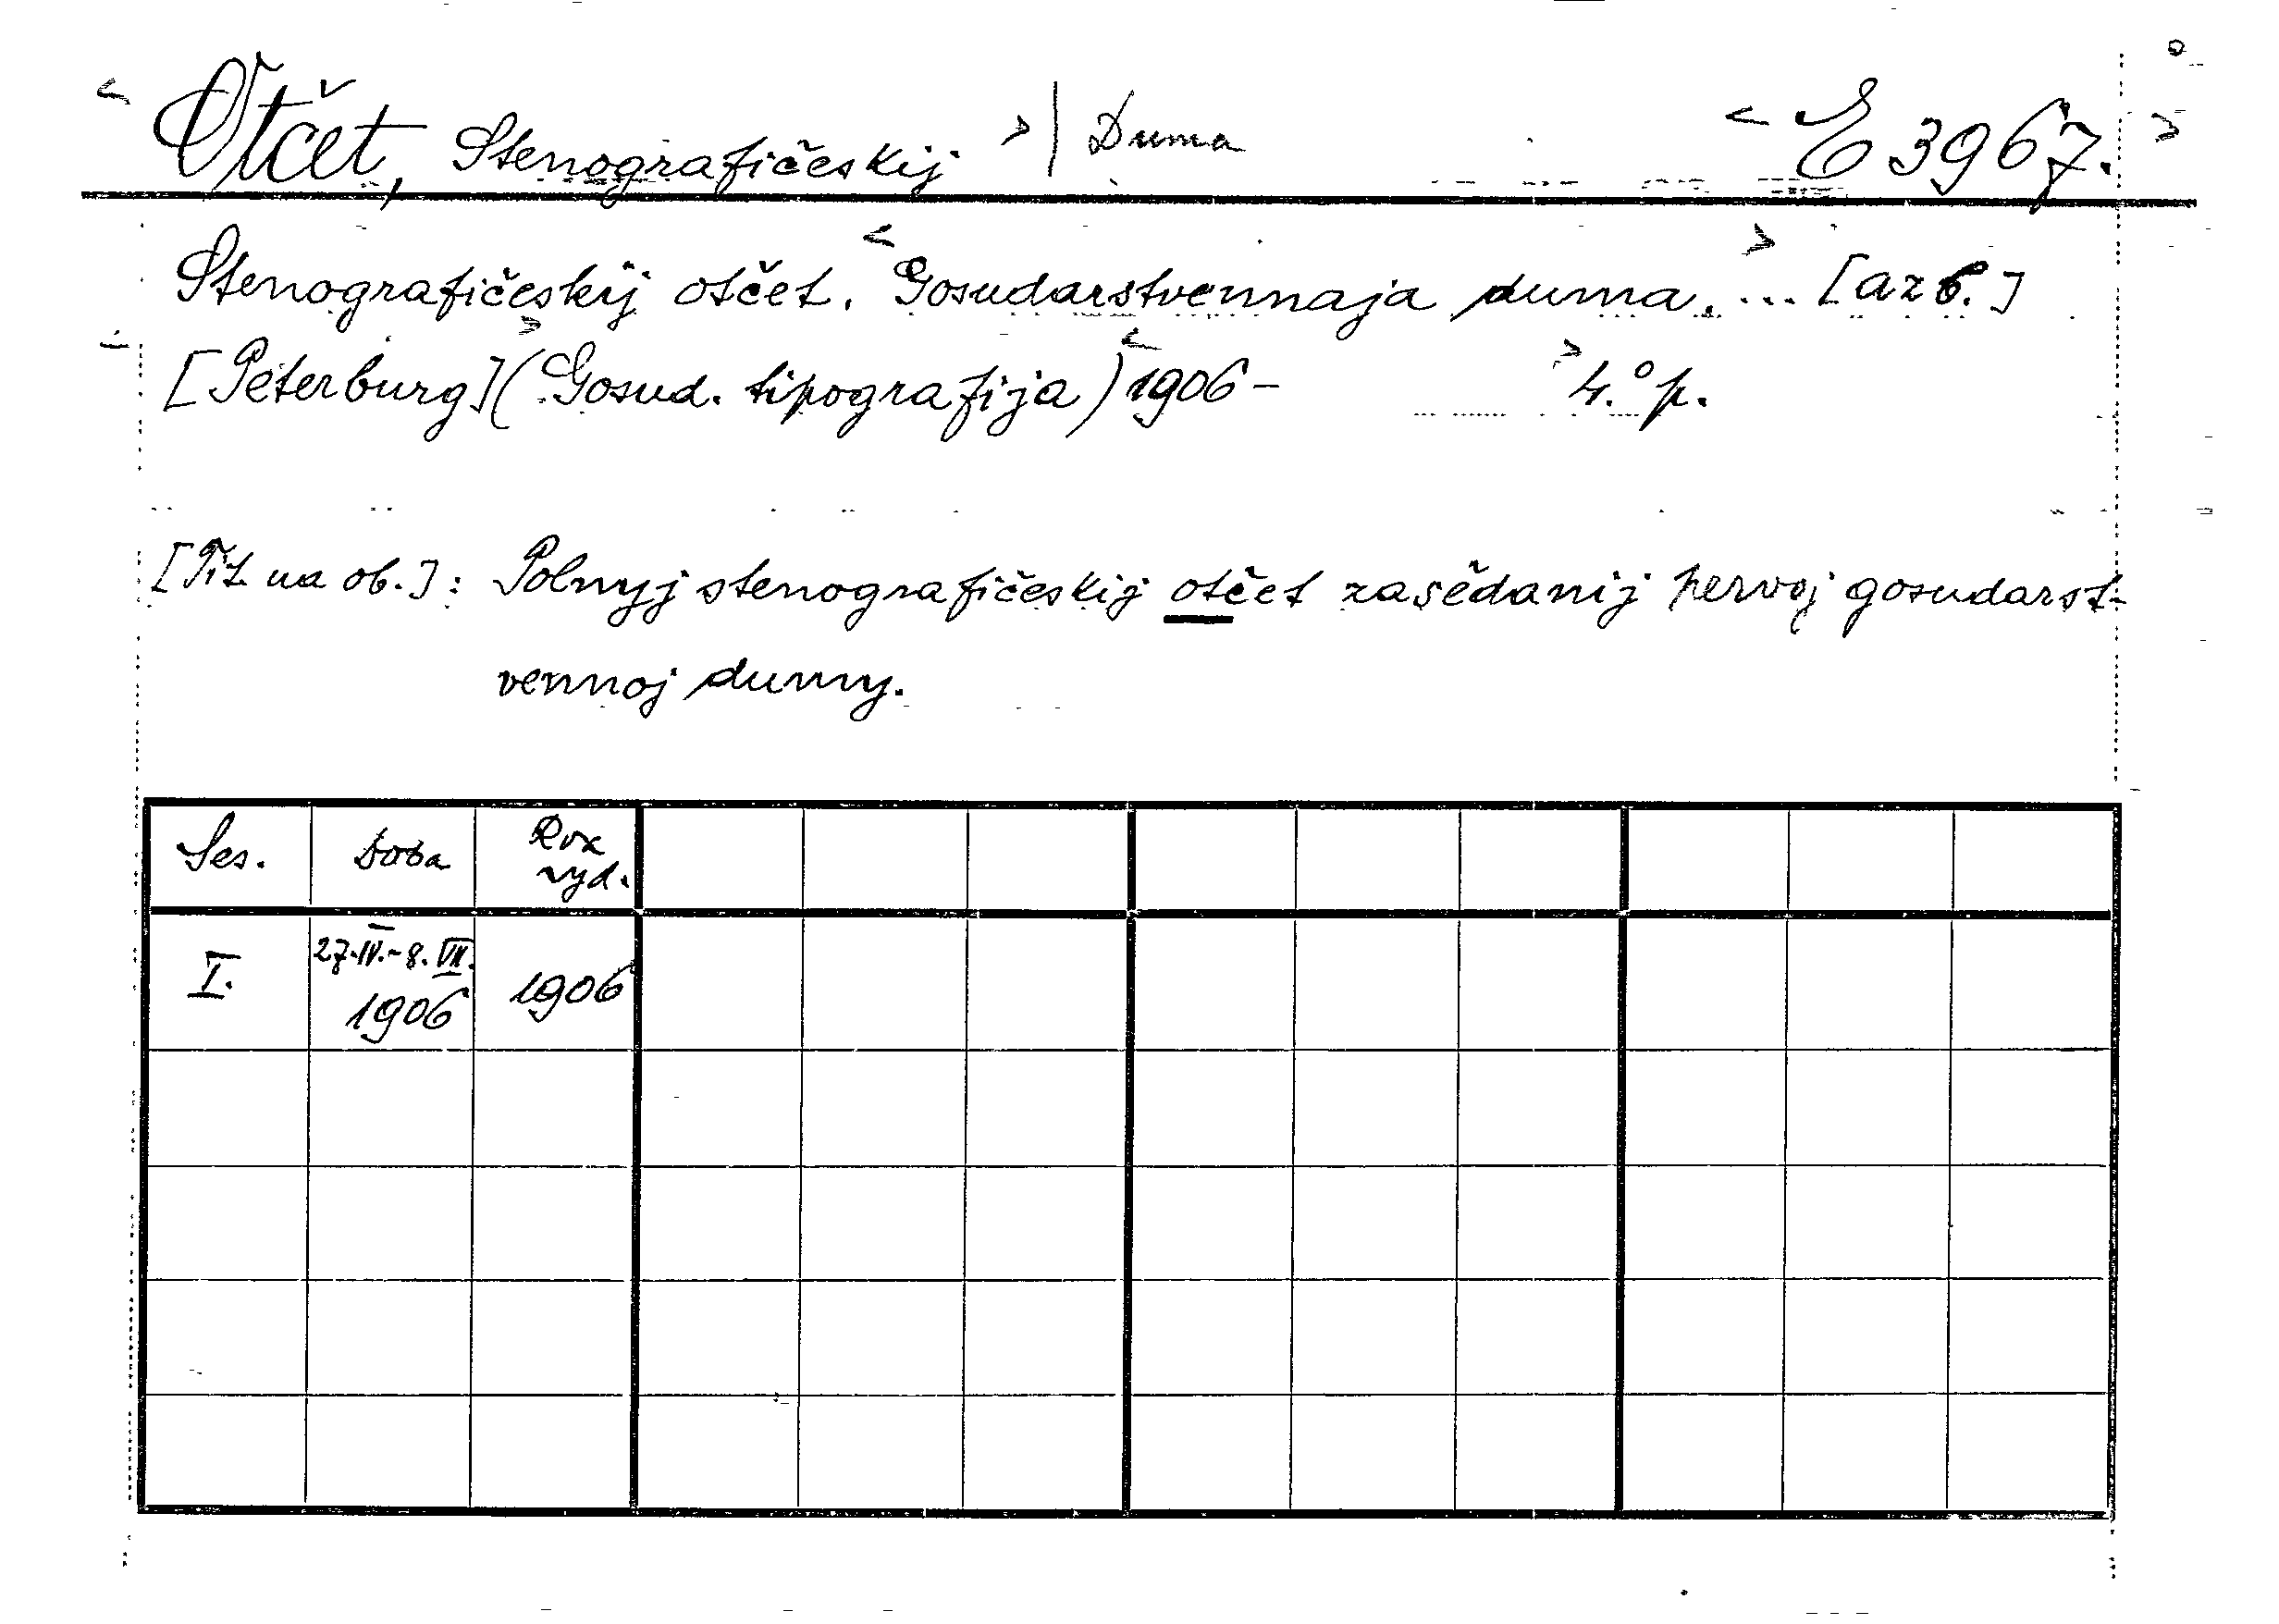 < Otčet, Stenografičeskij > | Duma < E 3967. >
Stenografičeskij otčet. < Gosudarstvennaja duma. > ... [azb.]
[Peterburg] (Gosud. tipografija) 1906- 4.° p.
[Tit. na ob.]: Polnyj stenografičeskij otčet zasědanij pervoj gosudarst-
vennoj dumy.
Ses. Doba Rok vyd.
I. 27.IV.-8.VII. 1906 1906